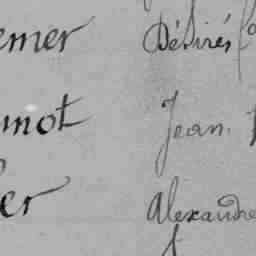 emer Désirés
not Jean.
er Alexandre